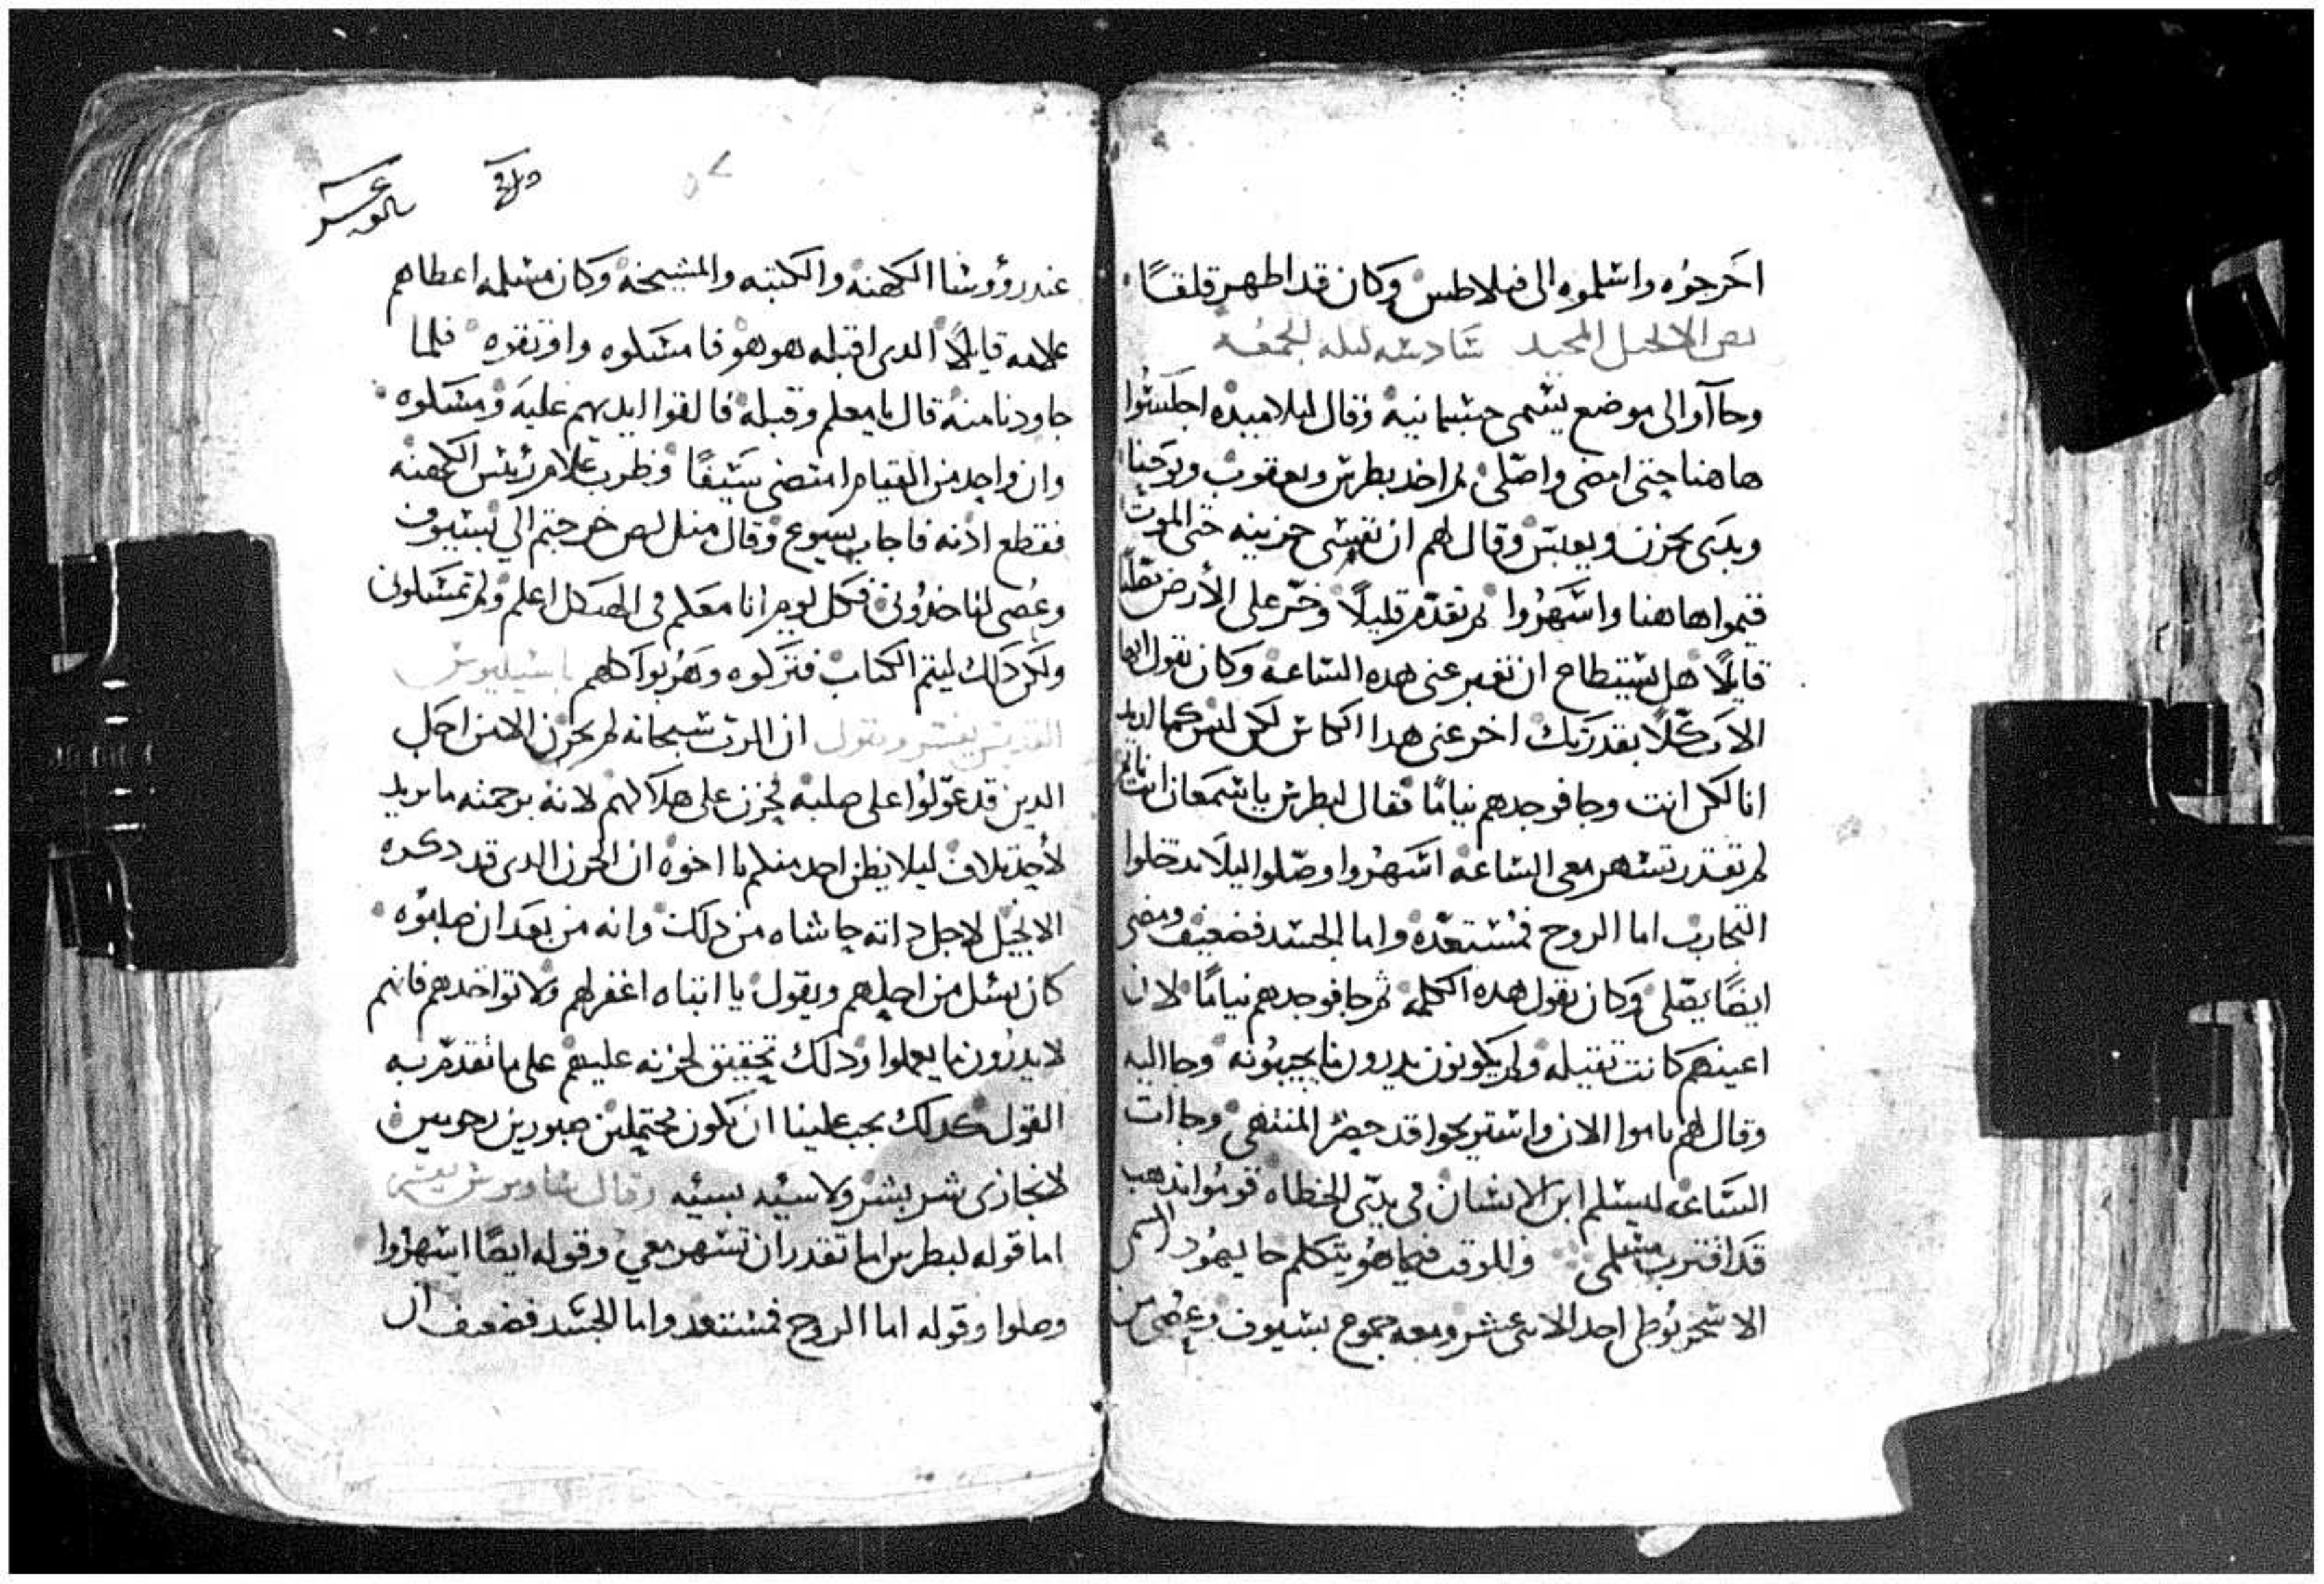 اخرجوه واسلموه الى فيلاطس وكان قد اظهر قلقًا
نص الانجيل المجيد سادسه ليله الجمعه
وجاآوا الى موضع يسمى جتسمانيه وقال لتلاميده اجلسوا
هاهنا حتى امضي واصلي ثم اخد بطرس ويعقوب ويوحنا
وبدى يحزن ويعبس وقال لهم ان نفسي حزينه حتى الموت
قيموا هاهنا واسهروا ثم تقدم قليلًا وخر على الأرض يصلى
قايلًا هل يستطاع ان تعبر عنى هده الساعه وكان يقول ايها
الاب كلًا بقدرتك اخر عنى هدا الكاس لكن ليس كما اريد
انا لكن انت وجا فوجدهم نيامًا فقال لبطرس يا سمعان انت نايم
لم تقدر تسهر معى الساعه اسهروا وصلوا ليلا تدخلوا
التجارب اما الروح فمستعده واما الجسد فضعيف ومضى
ايضًا يصلى وكان يقول هده الكلمه ثم جا فوجدهم نيامًا لان
اعينهم كانت تقيله ولم يكونون يدرون ما يجيبونه وجا اليه
وقال لهم ناموا الان واستريحوا قد حضر المنتهى وجاات
الساعه ليسلم ابن الانسان في يدى الخطاه قوموا ندهب
قد اقترب مسلمى وللوقت فيما هو يتكلم جا يهودا
الاسخريوطى احد الاتنى عشر ومعه جموع بسيوف وعصى من
عند رؤوسا الكهنه والكتبه والمشيخه وكان مسلمه اعطاهم
علامه قايلًا الدى اقبله هو هو فامسكوه واوتقوه فلما
جا ودنا منه قال يا معلم وقبله فالقوا ايديهم عليه ومسكوه
وان واحد من القيام امتضى سيفًا وضرب غلام رئيس الكهنه
فقطع ادنه فاجاب يسوع وقال متل لص خرجتم الي بسيوف
وعصى لتاخدونى فكل يوم انا معكم فى الهيكل اعلم ولم تمسكونى
ولكن دلك ليتم الكتاب فتركوه وهربوا كلهم باسيليوس
القديس يفسر ويقول ان الرب سبحانه لم يحزن الا من اجل
الدين قد عولوا على صلبه فحزن على هلاكهم لانه برحمته ما يريد
لأحد تلاف ليلا يظن احد منكم يا اخوه ان الحزن الدى قد دكره
الانجيل لاجل داته حاشاه من دلك وانه من بعد ان صلبوه
كان يسئل من اجلهم ويقول يا ابتاه اغفر لهم ولا تواخدهم فانهم
لا يدرون ما يعملوا ودلك تحقيق لحزنه عليهم على ما تقدم به
القول كدلك يجب علينا ان نكون محتملين صبورين
لا نجازى شر بشر ولا سيئه بسيئه وقال ساويرس يفسر
اما قوله لبطرس اما تقدر ان تسهر معي وقوله ايضًا اسهروا
وصلوا وقوله اما الروح فمستعد واما الجسد فضعيف ان